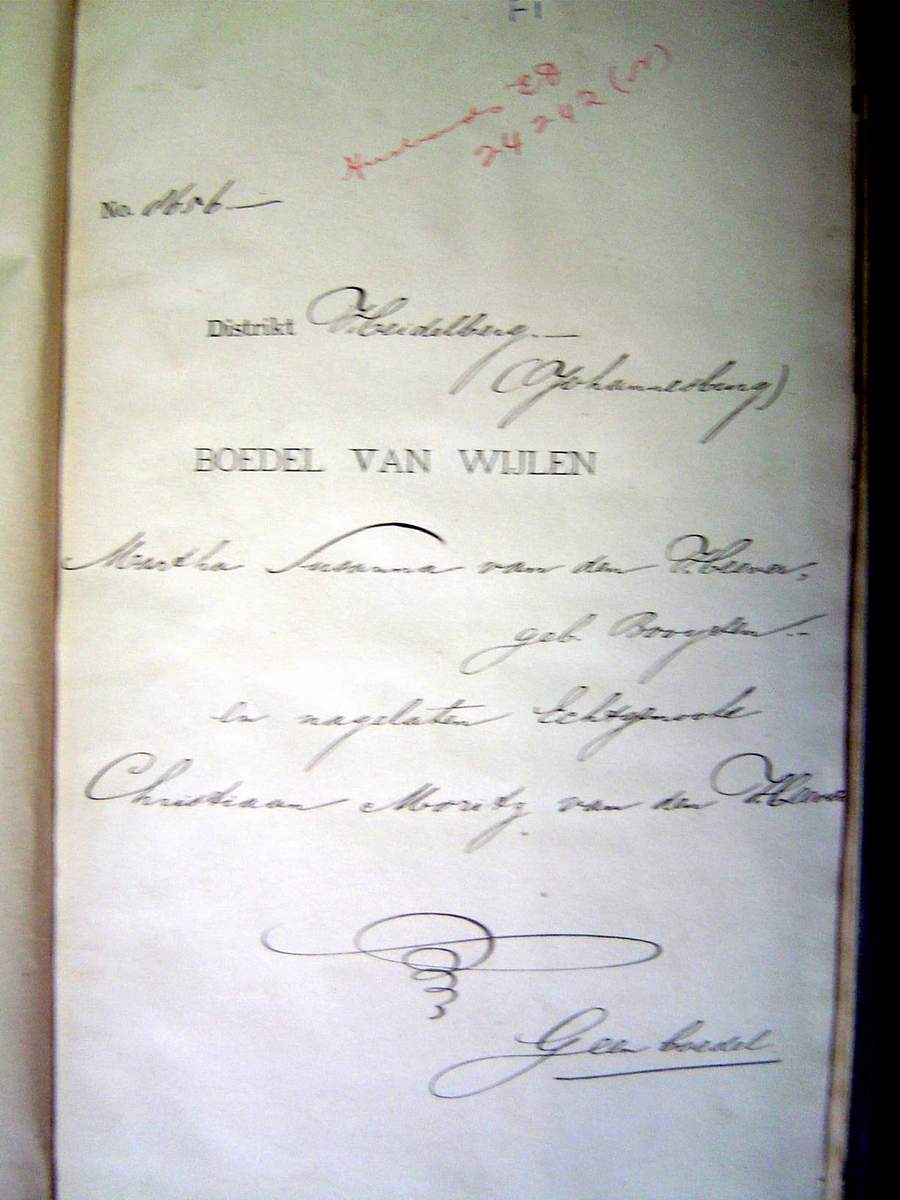 Husband's EB
24242 (N)
No.
Distrikt Heidelberg.—
(Johannesburg)
BOEDEL VAN WIJLEN
Martha Susanna van den Heever,
geb. Booysen.–
en nagelaten Echtgenoote
Christiaan Moritz van den Heever
Geen boedel